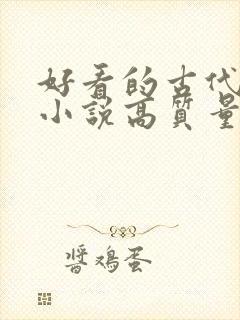 好看的古代
小説高質量
醬鸡蛋